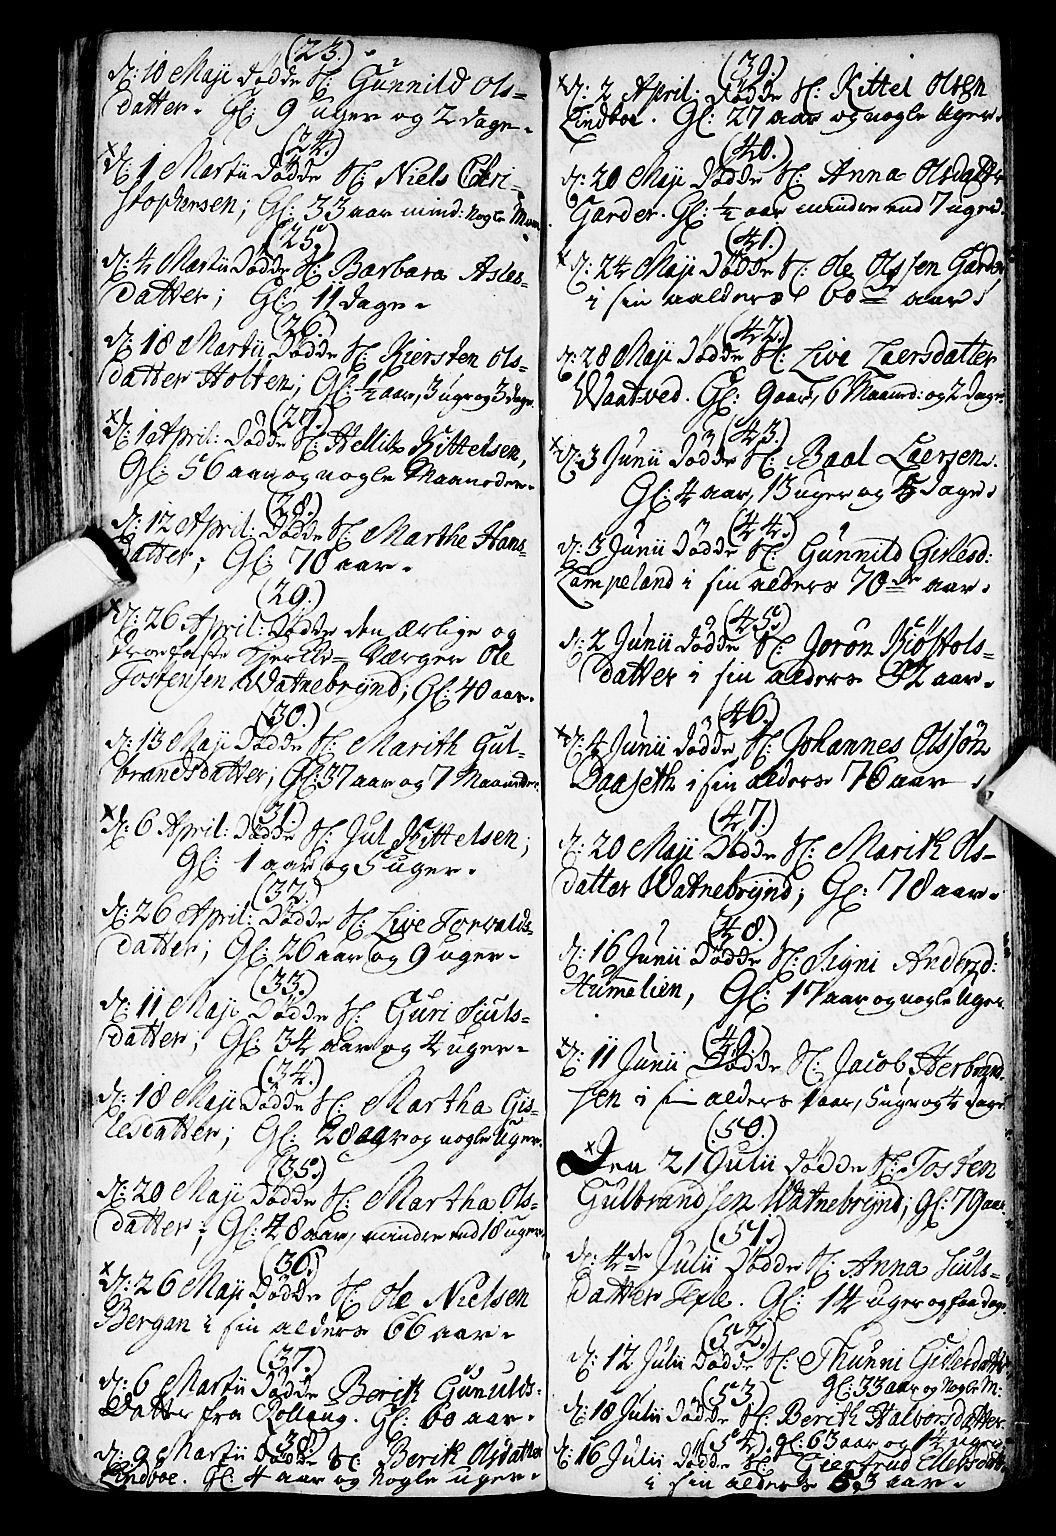 (23.)
D: 10 Maji Dødde N: Gunnild Ols=
datter. Gl: 9 uger og 2 dage.
(24.)
D: 1 Martii Dødde N: Niels Chri-
stophersen; Gl: 33 aar mind: nogle
(25.)
D: 4 Martii Dødde N: Barbara Asles-
datter; Gl: 11 dage.
(26.)
D: 18 Martii Dødde N: Kiersten Ols=
datter Holten; Gl: ½ aar, 3 uger og 3 dage.
(27.)
D: 1 April: Dødde N: Kittelsen,
Gl: 56 aar og nogle Maaneder.
(28.)
D: 12 April: Dødde N: Marthe Hans-
datter; Gl: 70 aar.
(29.)
D: 26 April: Dødde den ærlige og
Værger Ole
Tostensen Watnebrÿnd; Gl: 40 aar.
(30.)
D: 13 Maji Dødde N: Marith Gul-
brandsdatter; Gl: 37 aar og 7 Maaneder
(31.)
D: 6 April: Dødde N: Jul Kittelsen;
Gl: 1 aar og 5 uger.
(32.)
D: 26 April: Dødde N: Live Torvalds-
datter; Gl: 26 aar og 9 uger.
(33.)
D: 11 Maji Dødde N: Guri Siuls-
datter; Gl: 34 aar og 4 uger.
(34.)
D: 18 Maji Dødde N: Martha Gis-
lesdatter; Gl: 28 aar og nogle Uger.
(35.)
D: 20 Maji Dødde N: Martha Ols-
datter; Gl: 48 aar, mindre end 18 uger
(36.)
D: 26 Maji Dødde N: Ole Nielsen
Bergan i sin alders 66 aar.
(37.)
D: 6 Martii Dødde Berith Gunulds-
Datter fra Gl: 60 aar.
(38.)
D: 9 Martii Dødde N: Berith Olsdatter
Lindboe. Gl: 4 aar og Nogle uger.
(39.)
D: 2 April: Dødde N: Kittel Olsen
Lindboe. Gl: 27 aar og nogle Uger.
(40.)
D: 20 Maji Dødde N: Anna Olsdatter
Garder. Gl: ½ aar mindre end 7 uger.
(41.)
D: 24 Maji Dødde N: Ole Olssen Garder
i sin aalders 60de aar.
(42.)
D: 28 Maji Dødde N: Live Laersdatter
Waatved. Gl: 9 aar, 6 Maaned: og 2 dage
(43.)
D: 3 Junii Dødde N: Baal Laersen.
Gl: 4 aar, 13 uger og 5 Dage.
(44.)
D: 3 Junii Dødde N: Gunnild Gislesd:
Lampeland i sin alders 70de aar.
(45.)
D: 2 Junii Dødde N: Gorôn Kiöstols-
datter i sin alders 82 aar.
(46.)
D: 4 Junii Dødde N: Johannes Olssön
Daaseth i sin alders 76 aar
(47.)
D: 20 Maji Dødde N: Marith Ols-
datter Watnebrÿnd; Gl: 78 aar.
(48.)
D: 16 Junii Dødde N: Signi Andersd:
Hummelien, Gl: 17 aar og nogle Uger
(49.)
D: 11 Junii Dødde N: Jacob Herbrand-
sen i sin alders 1 aar, 5 uger og 4 dage
(50.)
Den 21 Julii Dødde N: Tosten
Gulbrandssen Watnebrÿnd; Gl: 79 aar
(51.)
D: 4de Julii Dødde N: Anna Siuls-
datter Teple. Gl: 14 uger og faa dage.
(52.)
D: 12 Julii Dødde N: Thunni Gislesdatter
Gl: 33 aar og Nogle M:
(53)
D: 18 Julii Dødde N: Berith Halvorsdatter
Gl: 63 aar og 14 uger
(54).
D: 16 Julii Dødde N: Giertrud Ellefsdatter
i sin alders 63 aar.